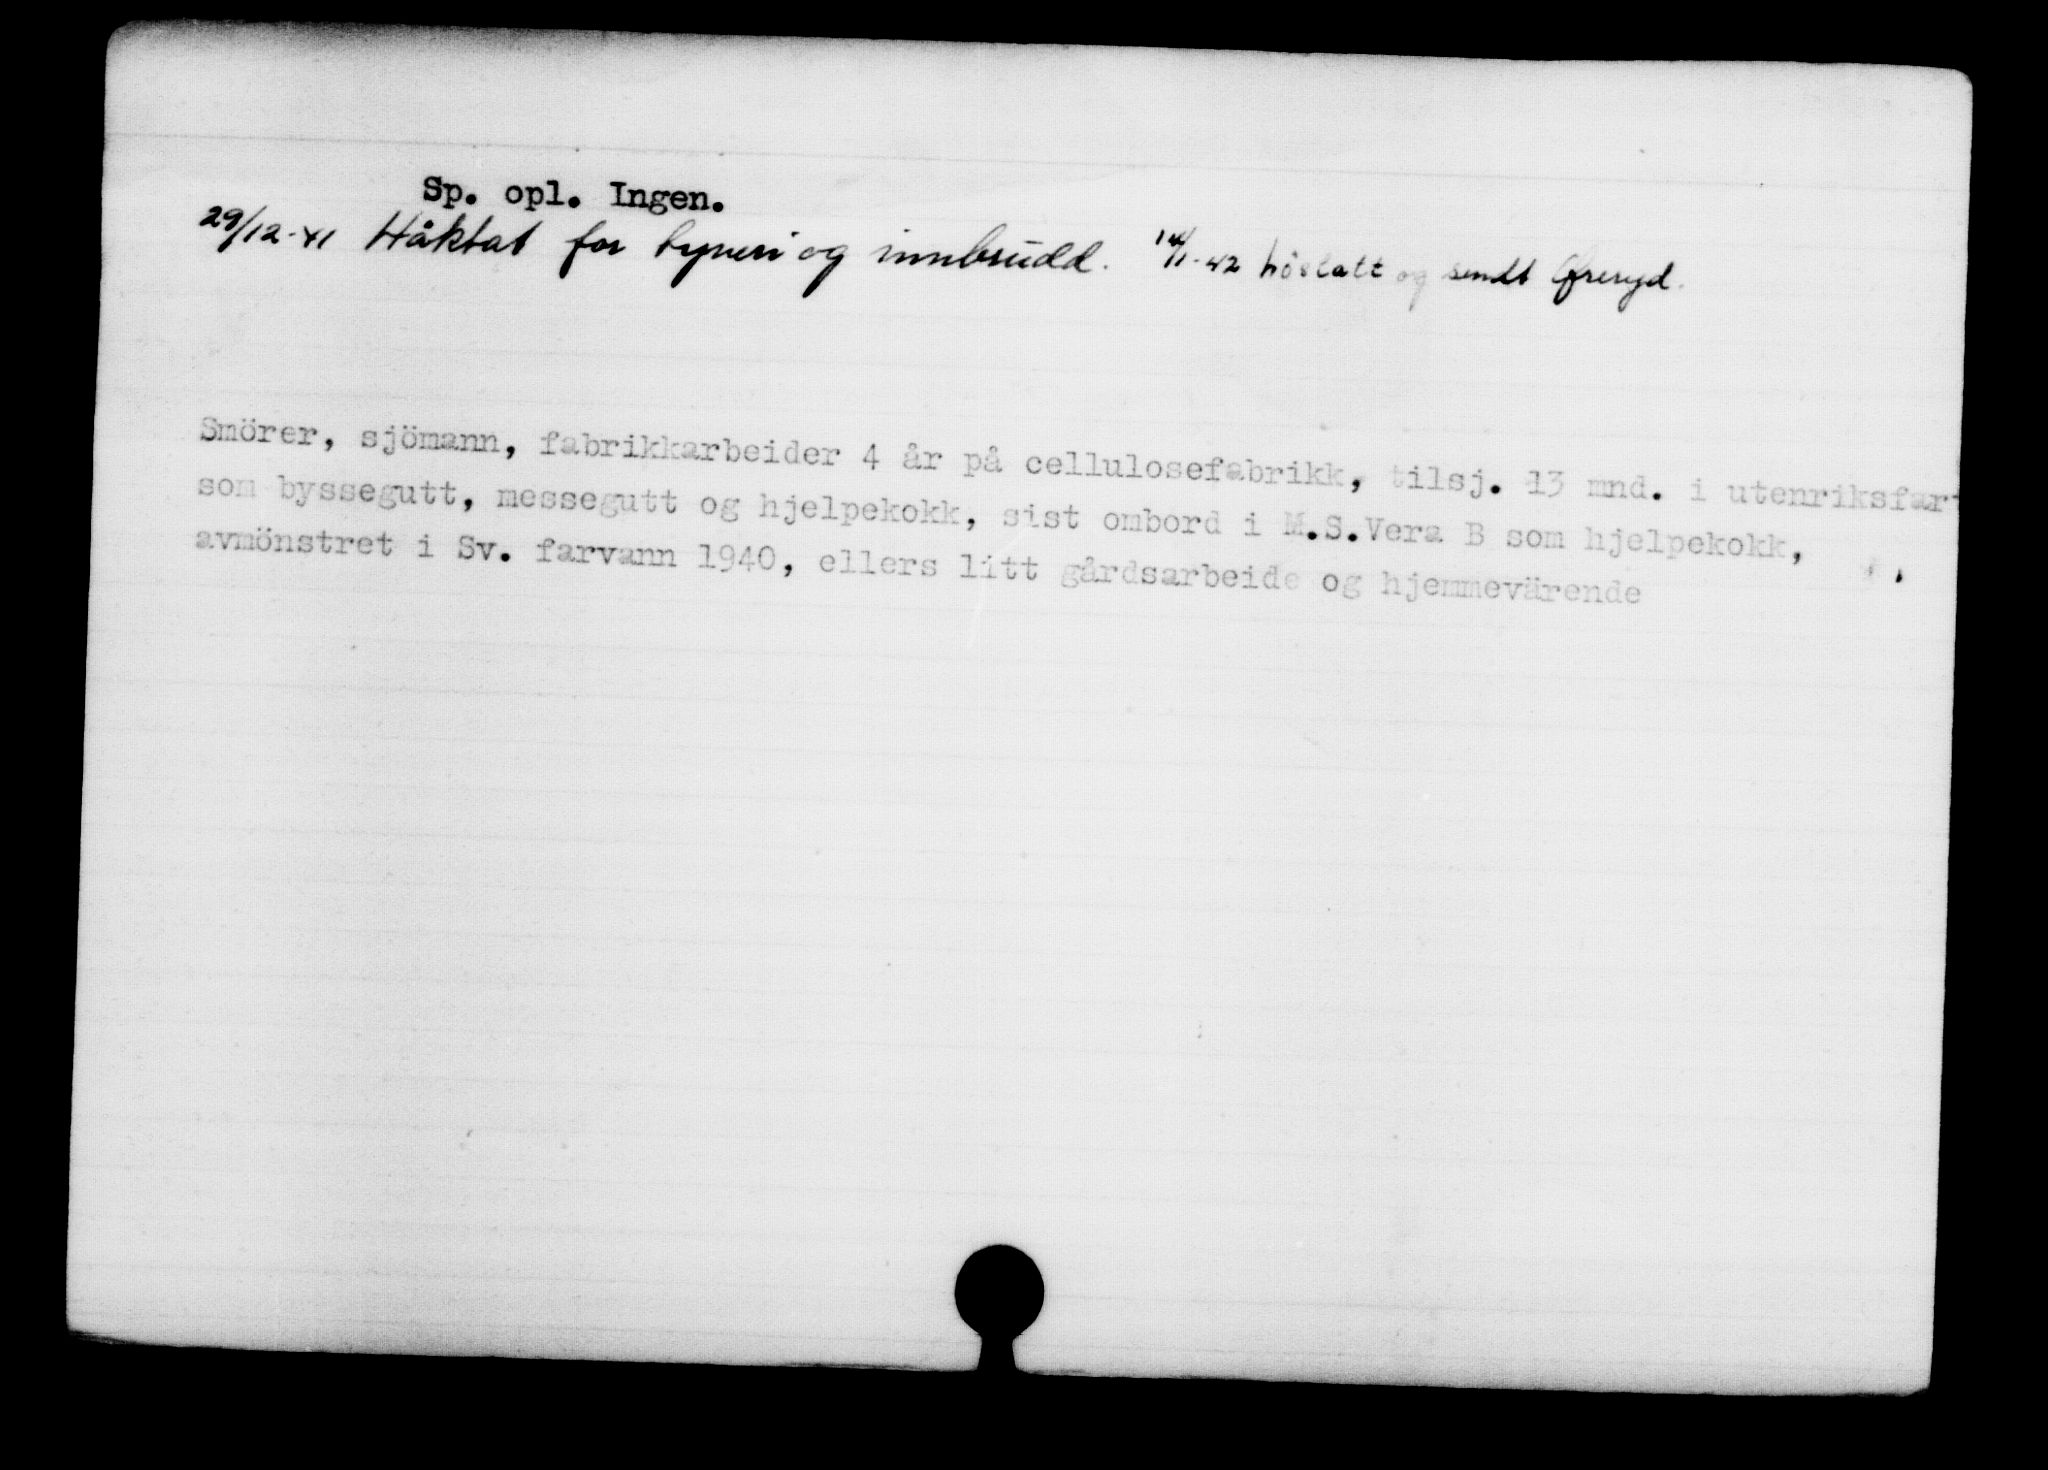 Sp. opl. Ingen.
29/12-41 Håktat for tyveri og innbrudd. 14/1-42 löslatt og sendt Öreryd.
Smörer, sjömann, fabrikkarbeider 4 år på cellulosefabrikk, tilsj. 13 mnd. i utenriksfart
som byssegutt, messegutt og hjelpekokk, sist ombord i M.S.Vera B som hjelpekokk,
avmönstret i Sv. farvann 1940, ellers litt gårdsarbeide og hjemmevärende